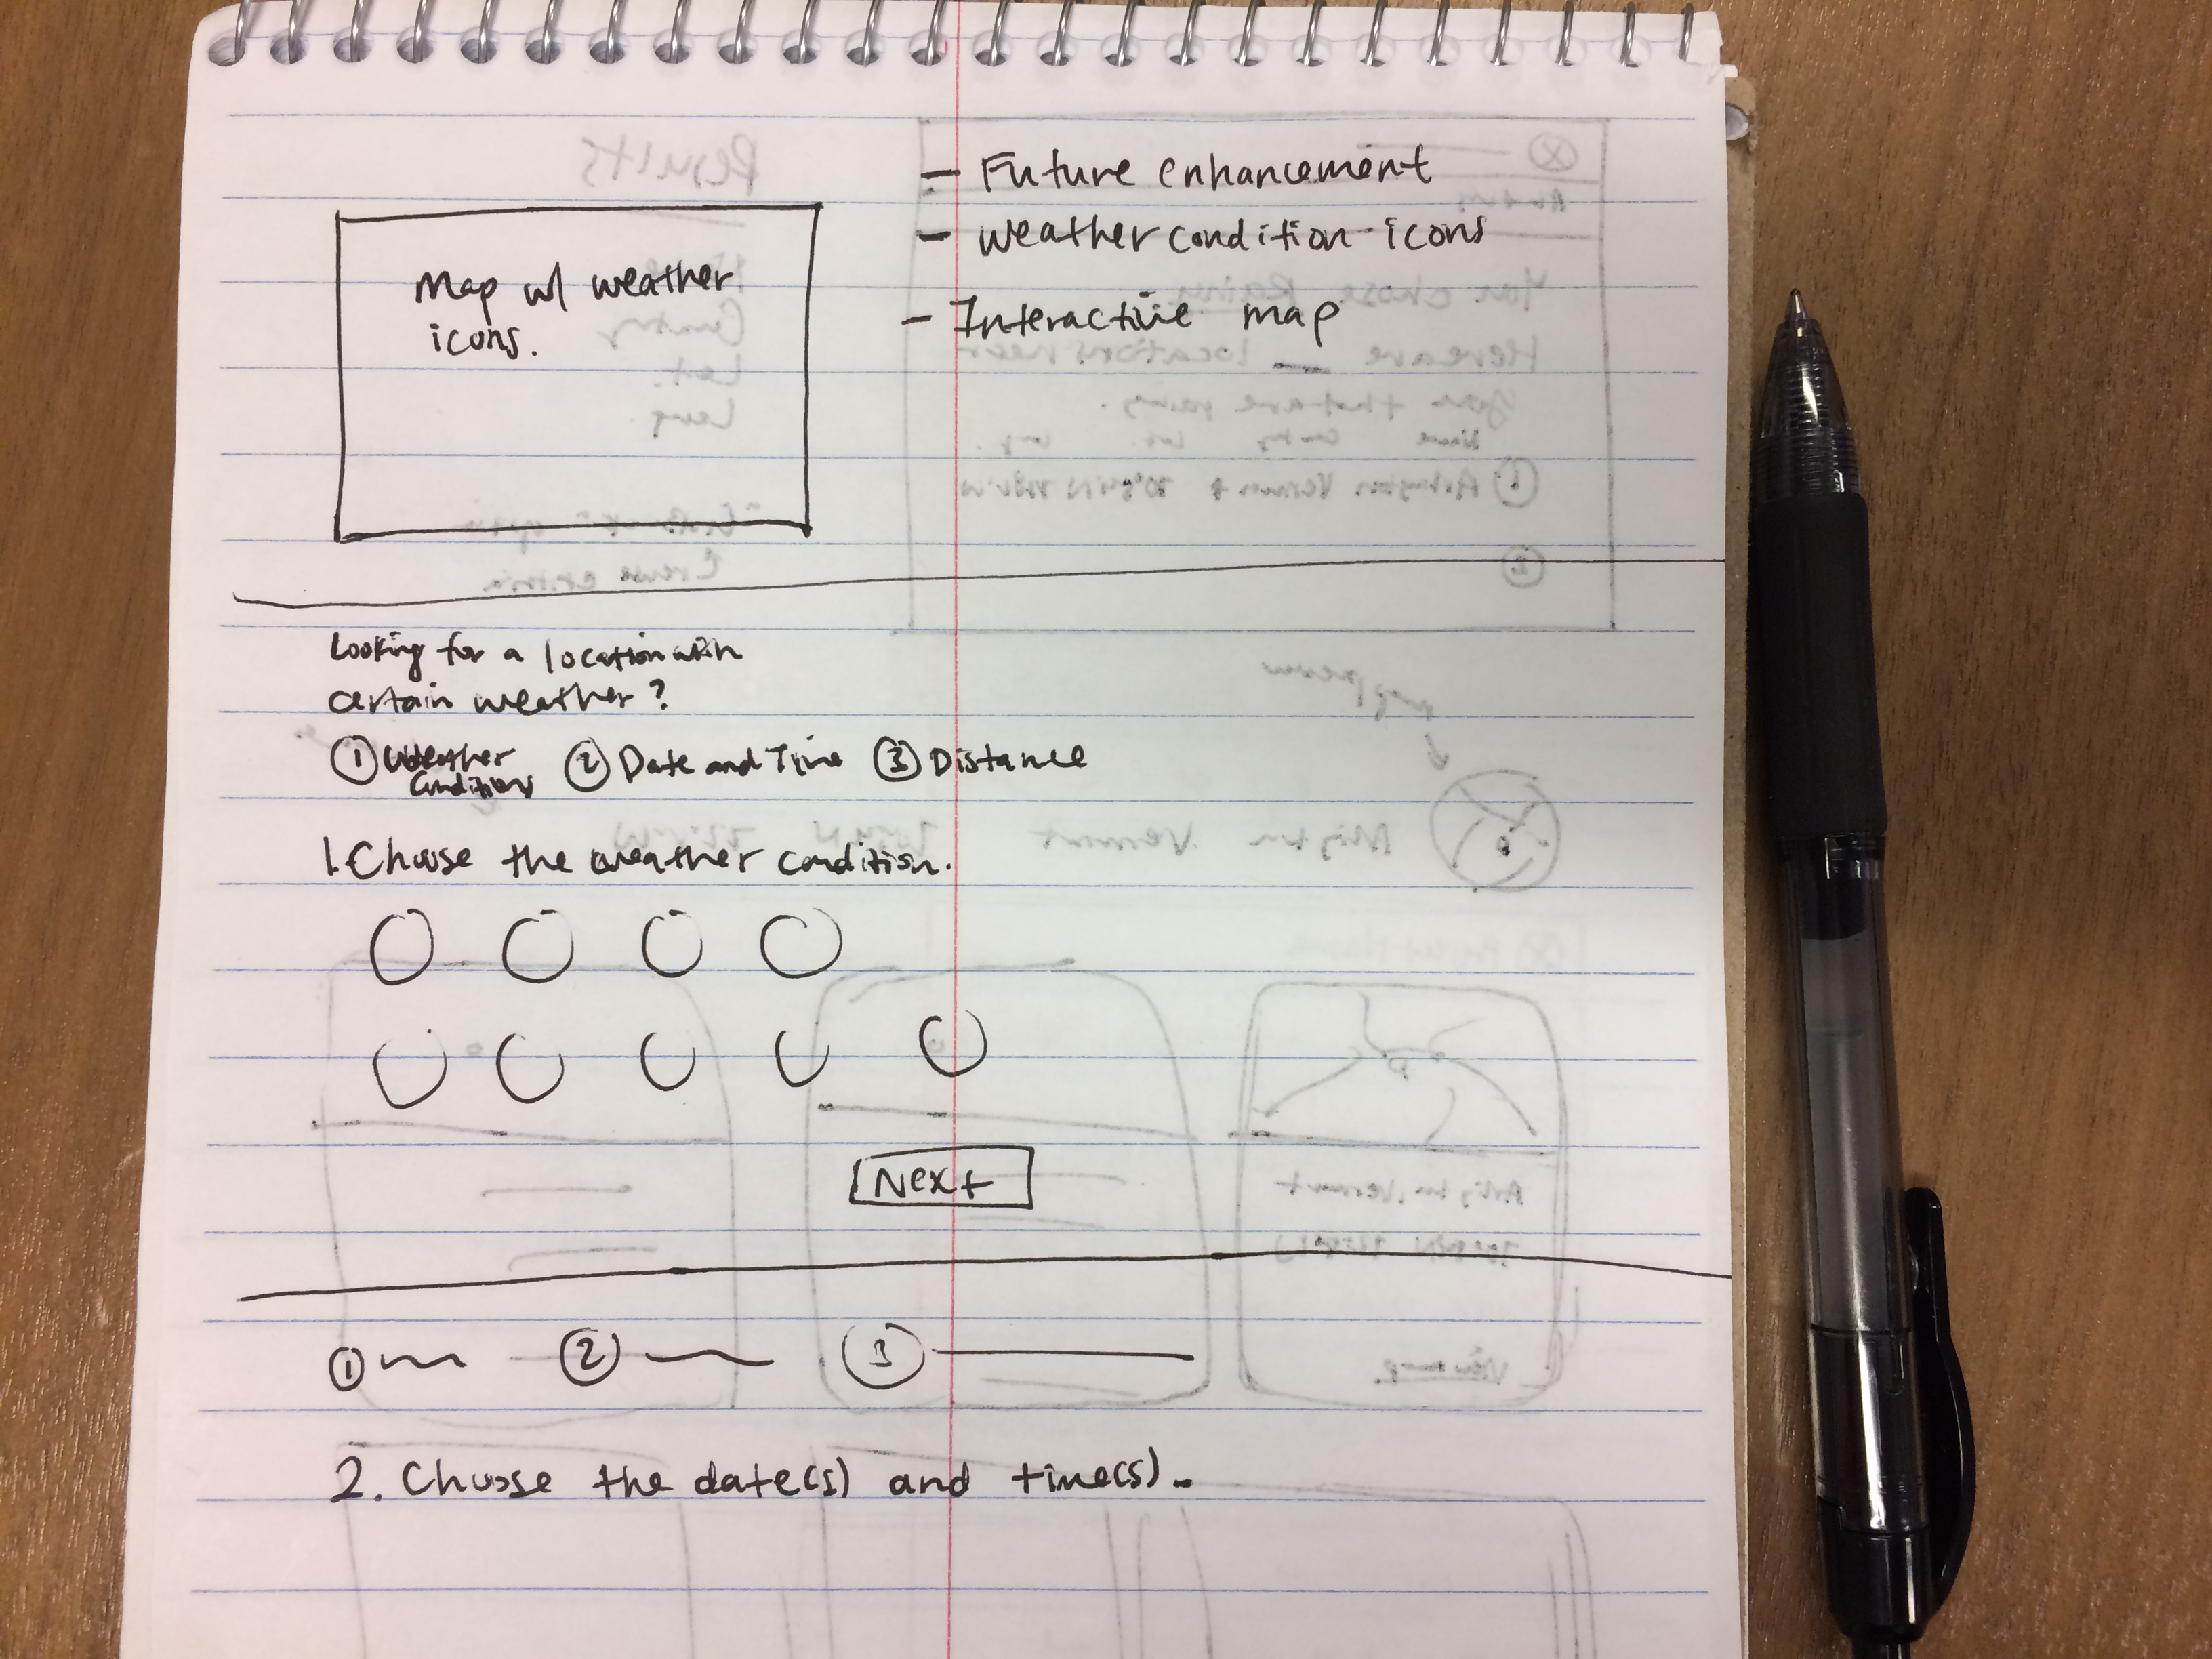 Map w/ weather
icons.
- Future enhancement
- weather condition icons
- Interactive map
Looking for a location with
certain weather?
① Weather Conditions ② Date and Time ③ Distance
1. Choose the weather condition.
Next
① ② ③
2. Choose the date(s) and time(s).